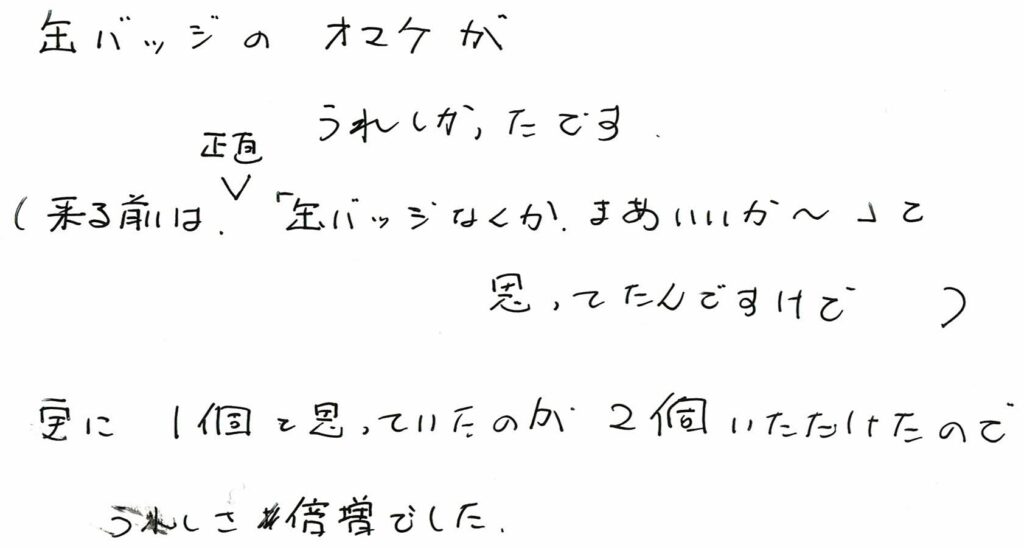 缶バッジの オマケが
うれしかったです.
正直
(乗る前は、「缶バッジなくが、まあいいか〜」と
思ってたんですけど )
更に 1個と思っていたのが 2個いただけたので
うれしさ倍増でした.